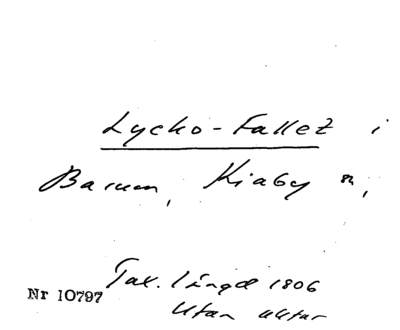 Lycko-Fallet i
Barum, Kiaby sn,
Tax. längd 1806
Nr 10797
Utan aktar